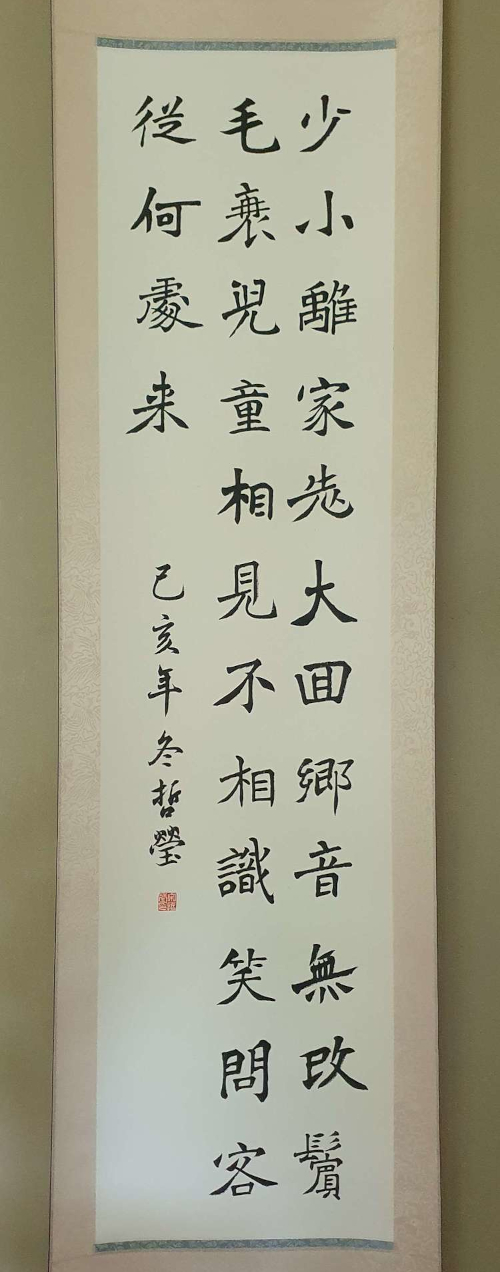 少小離家老大回鄉音無改鬢
毛衰兒童相見不相識笑問客
從何處来
己亥年冬哲瑩